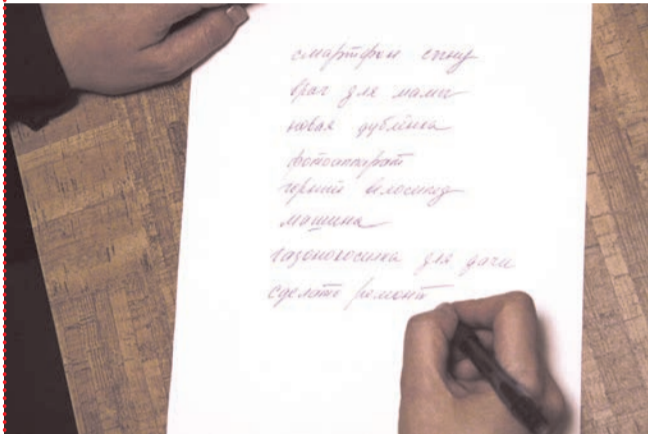 смартфон сыну
врач для мамы
новая дублёнка
фотоаппарат
горный велосипед
машина
газонокосилка для дачи
сделать ремонт